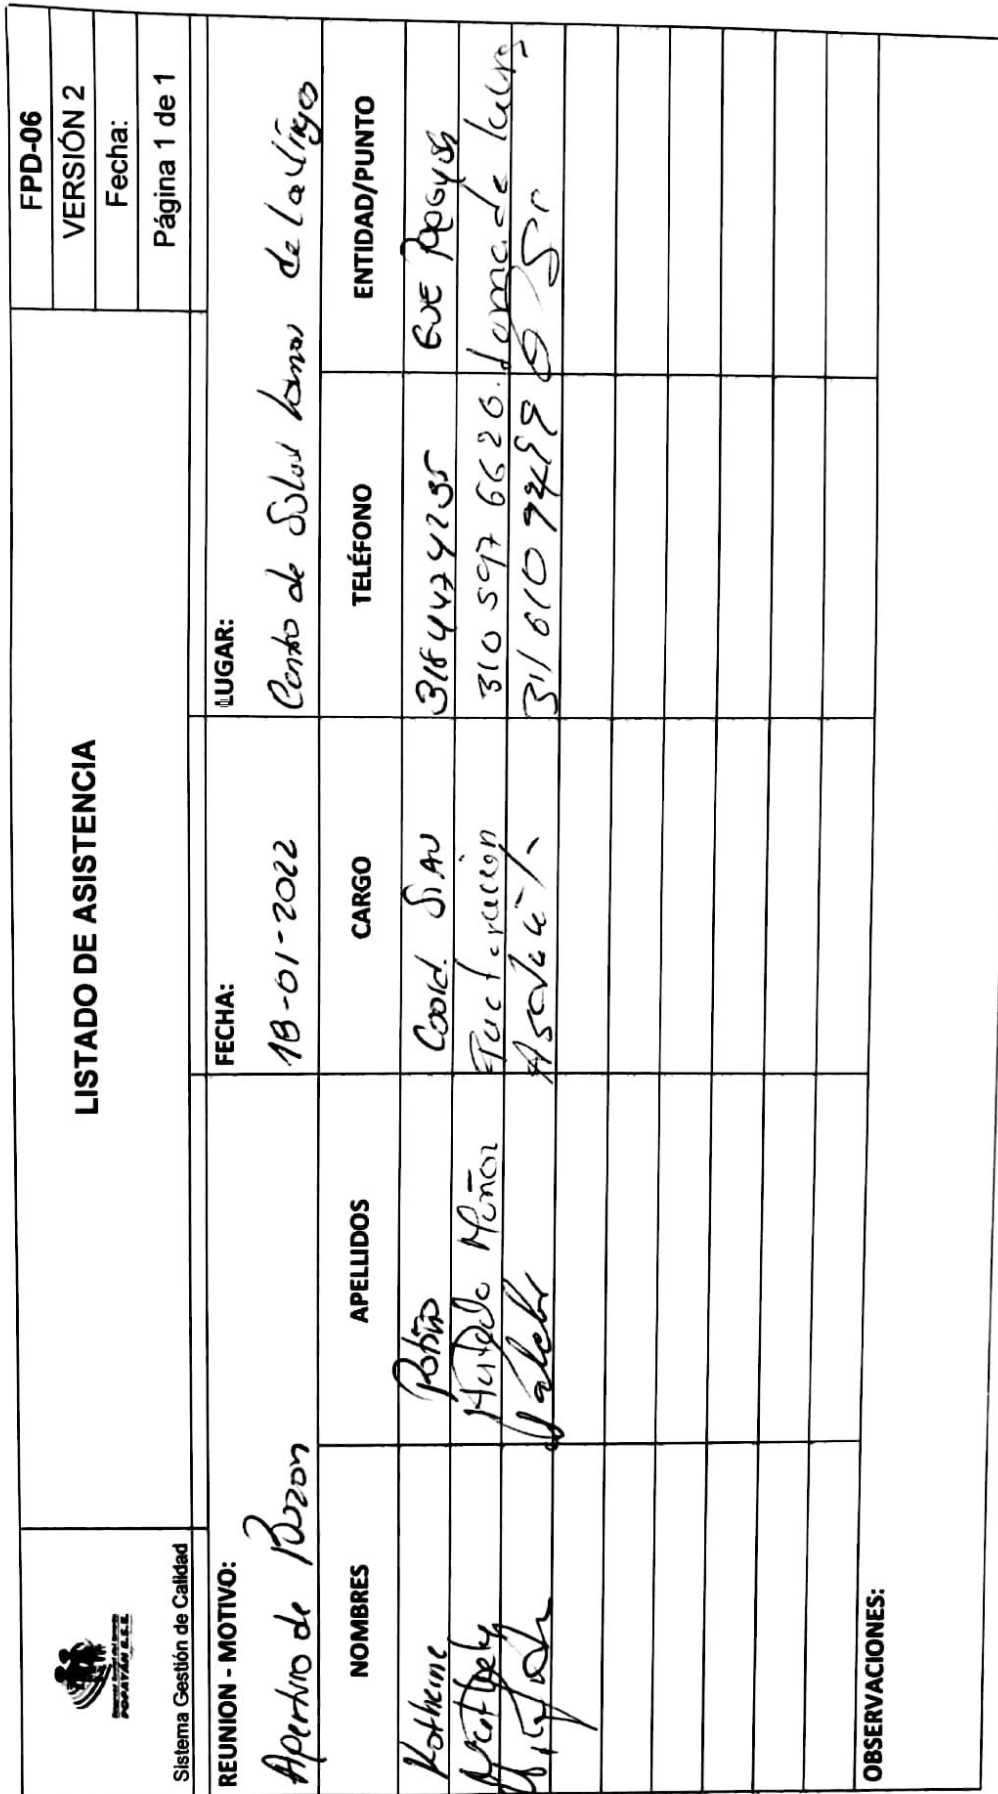 POPAYÁN E.S.E.
Sistema Gestión de Calidad
LISTADO DE ASISTENCIA
FPD-06
VERSIÓN 2
Fecha:
Página 1 de 1
REUNION - MOTIVO:
Apertura de Buzon
FECHA:
18-01-2022
LUGAR:
Centro de Salud Lomas de La Virgen
NOMBRES APELLIDOS CARGO TELÉFONO ENTIDAD/PUNTO
Katherine Coord. SIAU 3184474235 ESE Popayán
Hurtado Muñoz Facturación 310 597 6620. Loma de la Virg
311 610
OBSERVACIONES: